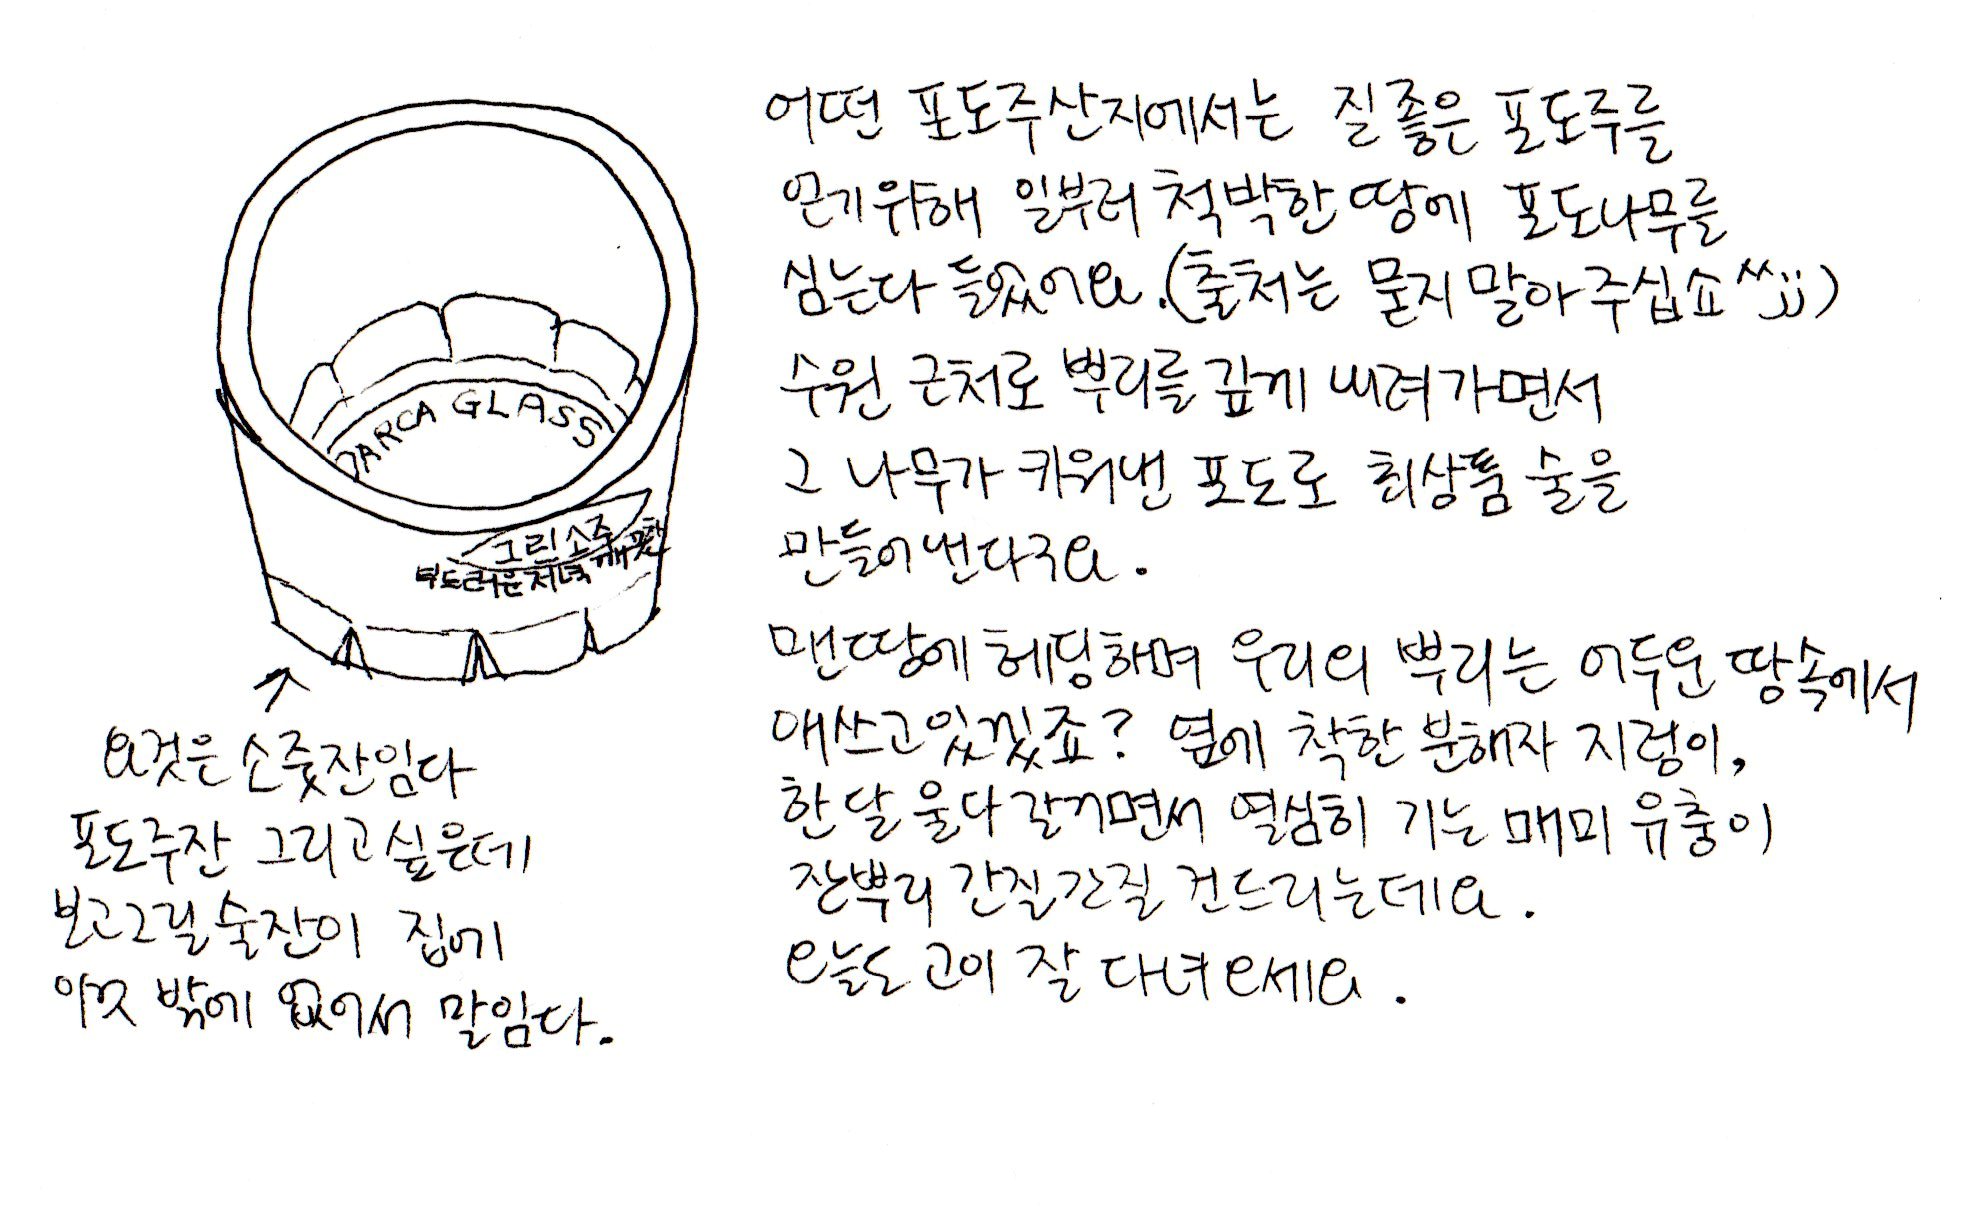 어떤 포도주산지에서는 질좋은 포도주를
얻기위해 일부러 척박한 땅에 포도나무를
심는다 들었어요.(출처는 묻지 말아주십쇼^^;;)
수원 근처로 뿌리를 깊게 내려가면서
그 나무가 키워낸 포도로 최상품 술을
만들어낸다구요.
맨땅에 헤딩하며 우리의 뿌리는 어두운 땅속에서
애쓰고있겠죠? 옆에 착한 분해자 지렁이,
한달 울다 갈거면서 열심히 기는 매미 유충이
잔뿌리 간질간질 건드리는데요.
오늘도 고이 잘 다녀오세요.
GLASS
그린소주
부드러운저녁 깨끗한
요것은 소줏잔임다
포도주잔 그리고싶은데
보고그릴 술잔이 집에
이것 밖에 없어서 말임다.